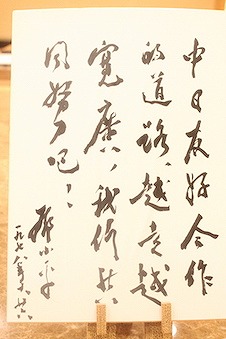 中日友好合作
的道路越走越
宽广，我们共
同努力吧！
邓小平
一九七八年十廿六